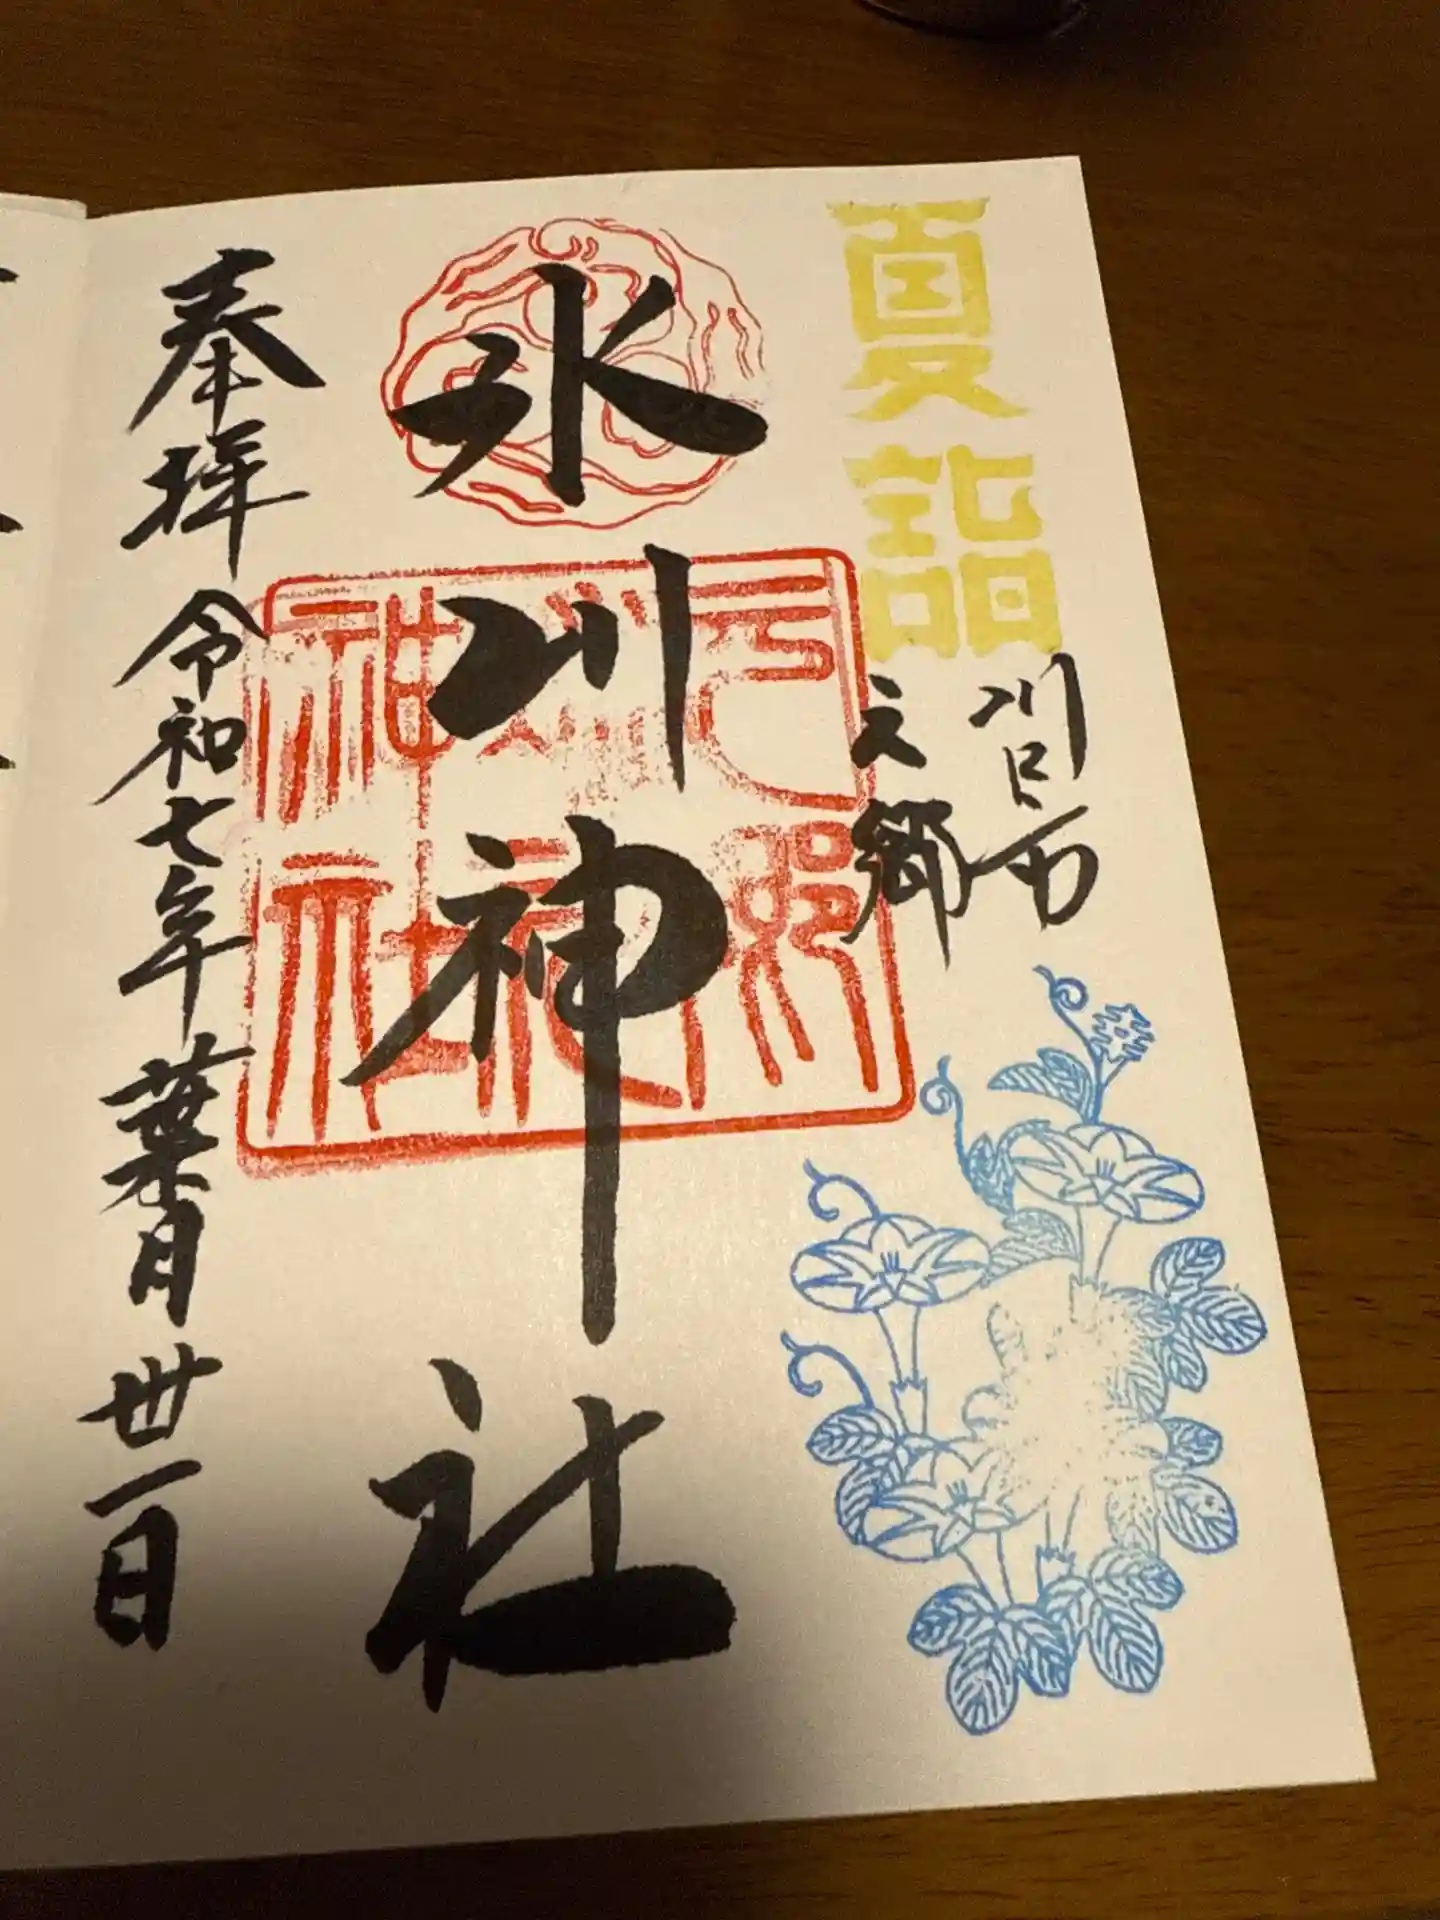 夏詣
川口市
元郷
氷川神社
元郷氷川神社
奉拝 令和七年葉月卅一日